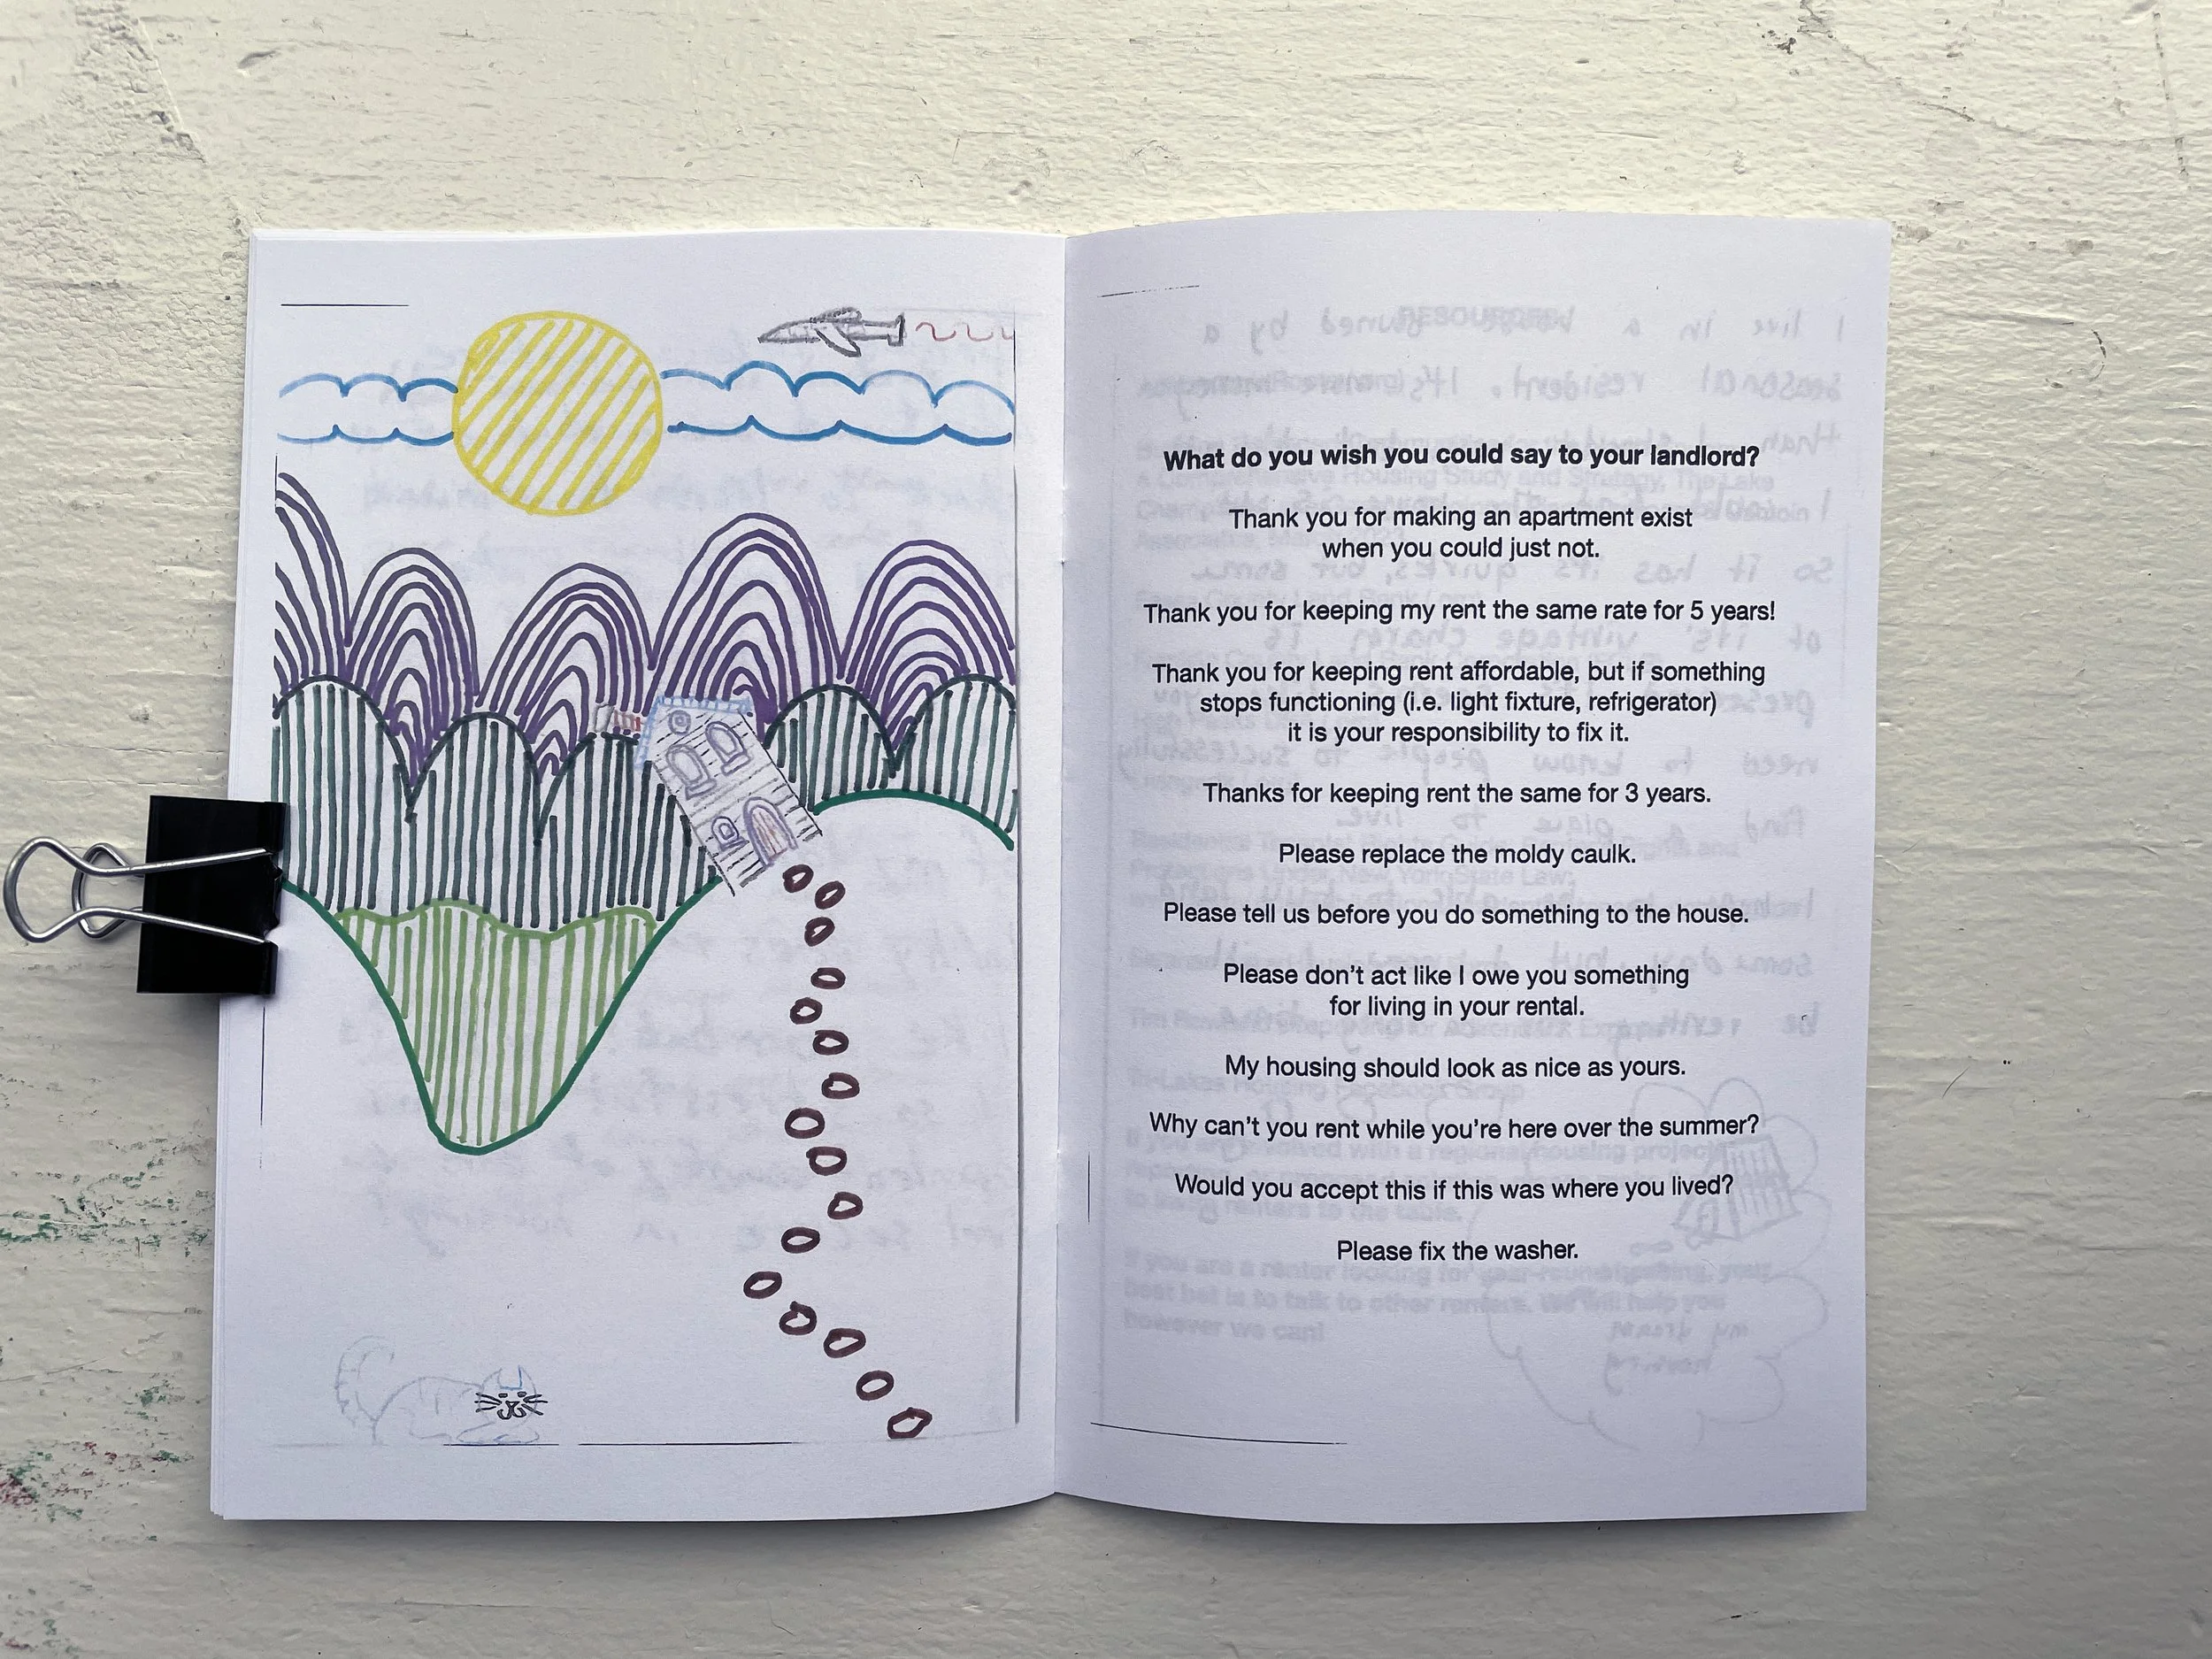 What do you wish you could say to your landlord?
Thank you for making an apartment exist
when you could just not.
Thank you for keeping my rent the same rate for 5 years!
Thank you for keeping rent affordable, but if something
stops functioning (i.e. light fixture, refrigerator)
it is your responsibility to fix it.
Thanks for keeping rent the same for 3 years.
Please replace the moldy caulk.
Please tell us before you do something to the house.
Please don't act like I owe you something
for living in your rental.
My housing should look as nice as yours.
Why can't you rent while you're here over the summer?
Would you accept this if this was where you lived?
Please fix the washer.